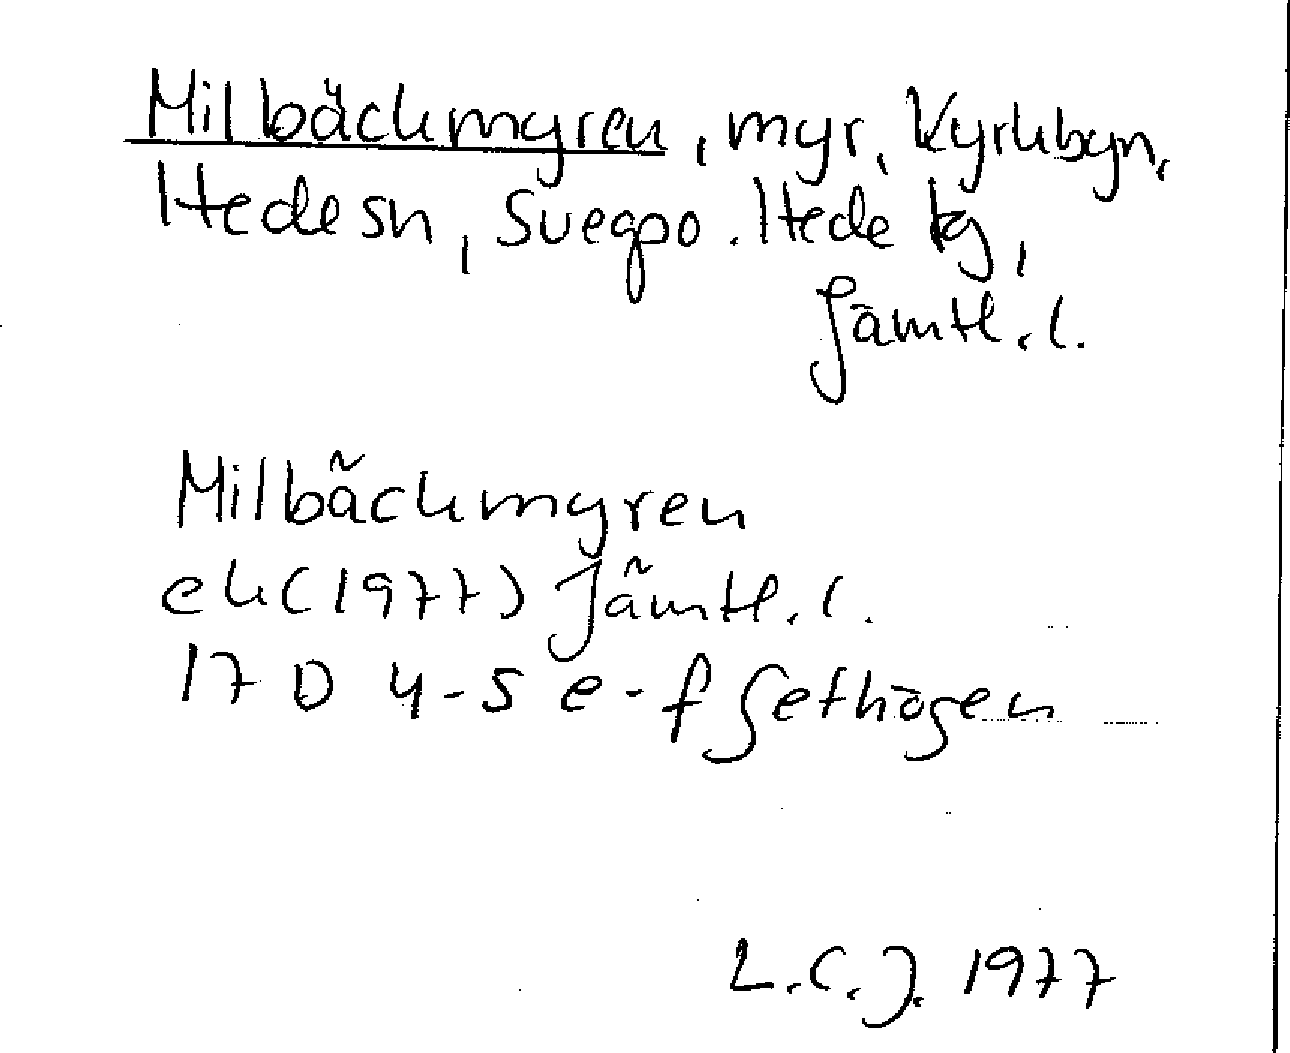 Milbäckmyren, myr, Kyrkbyn,
Hede sn, Svegpo. Hede tg,
Jämtl. l.
Milbäckmyren
ek (1977) Jämtl. l.
17 D 4-5 e-f Sethågen
L.C.J. 1977